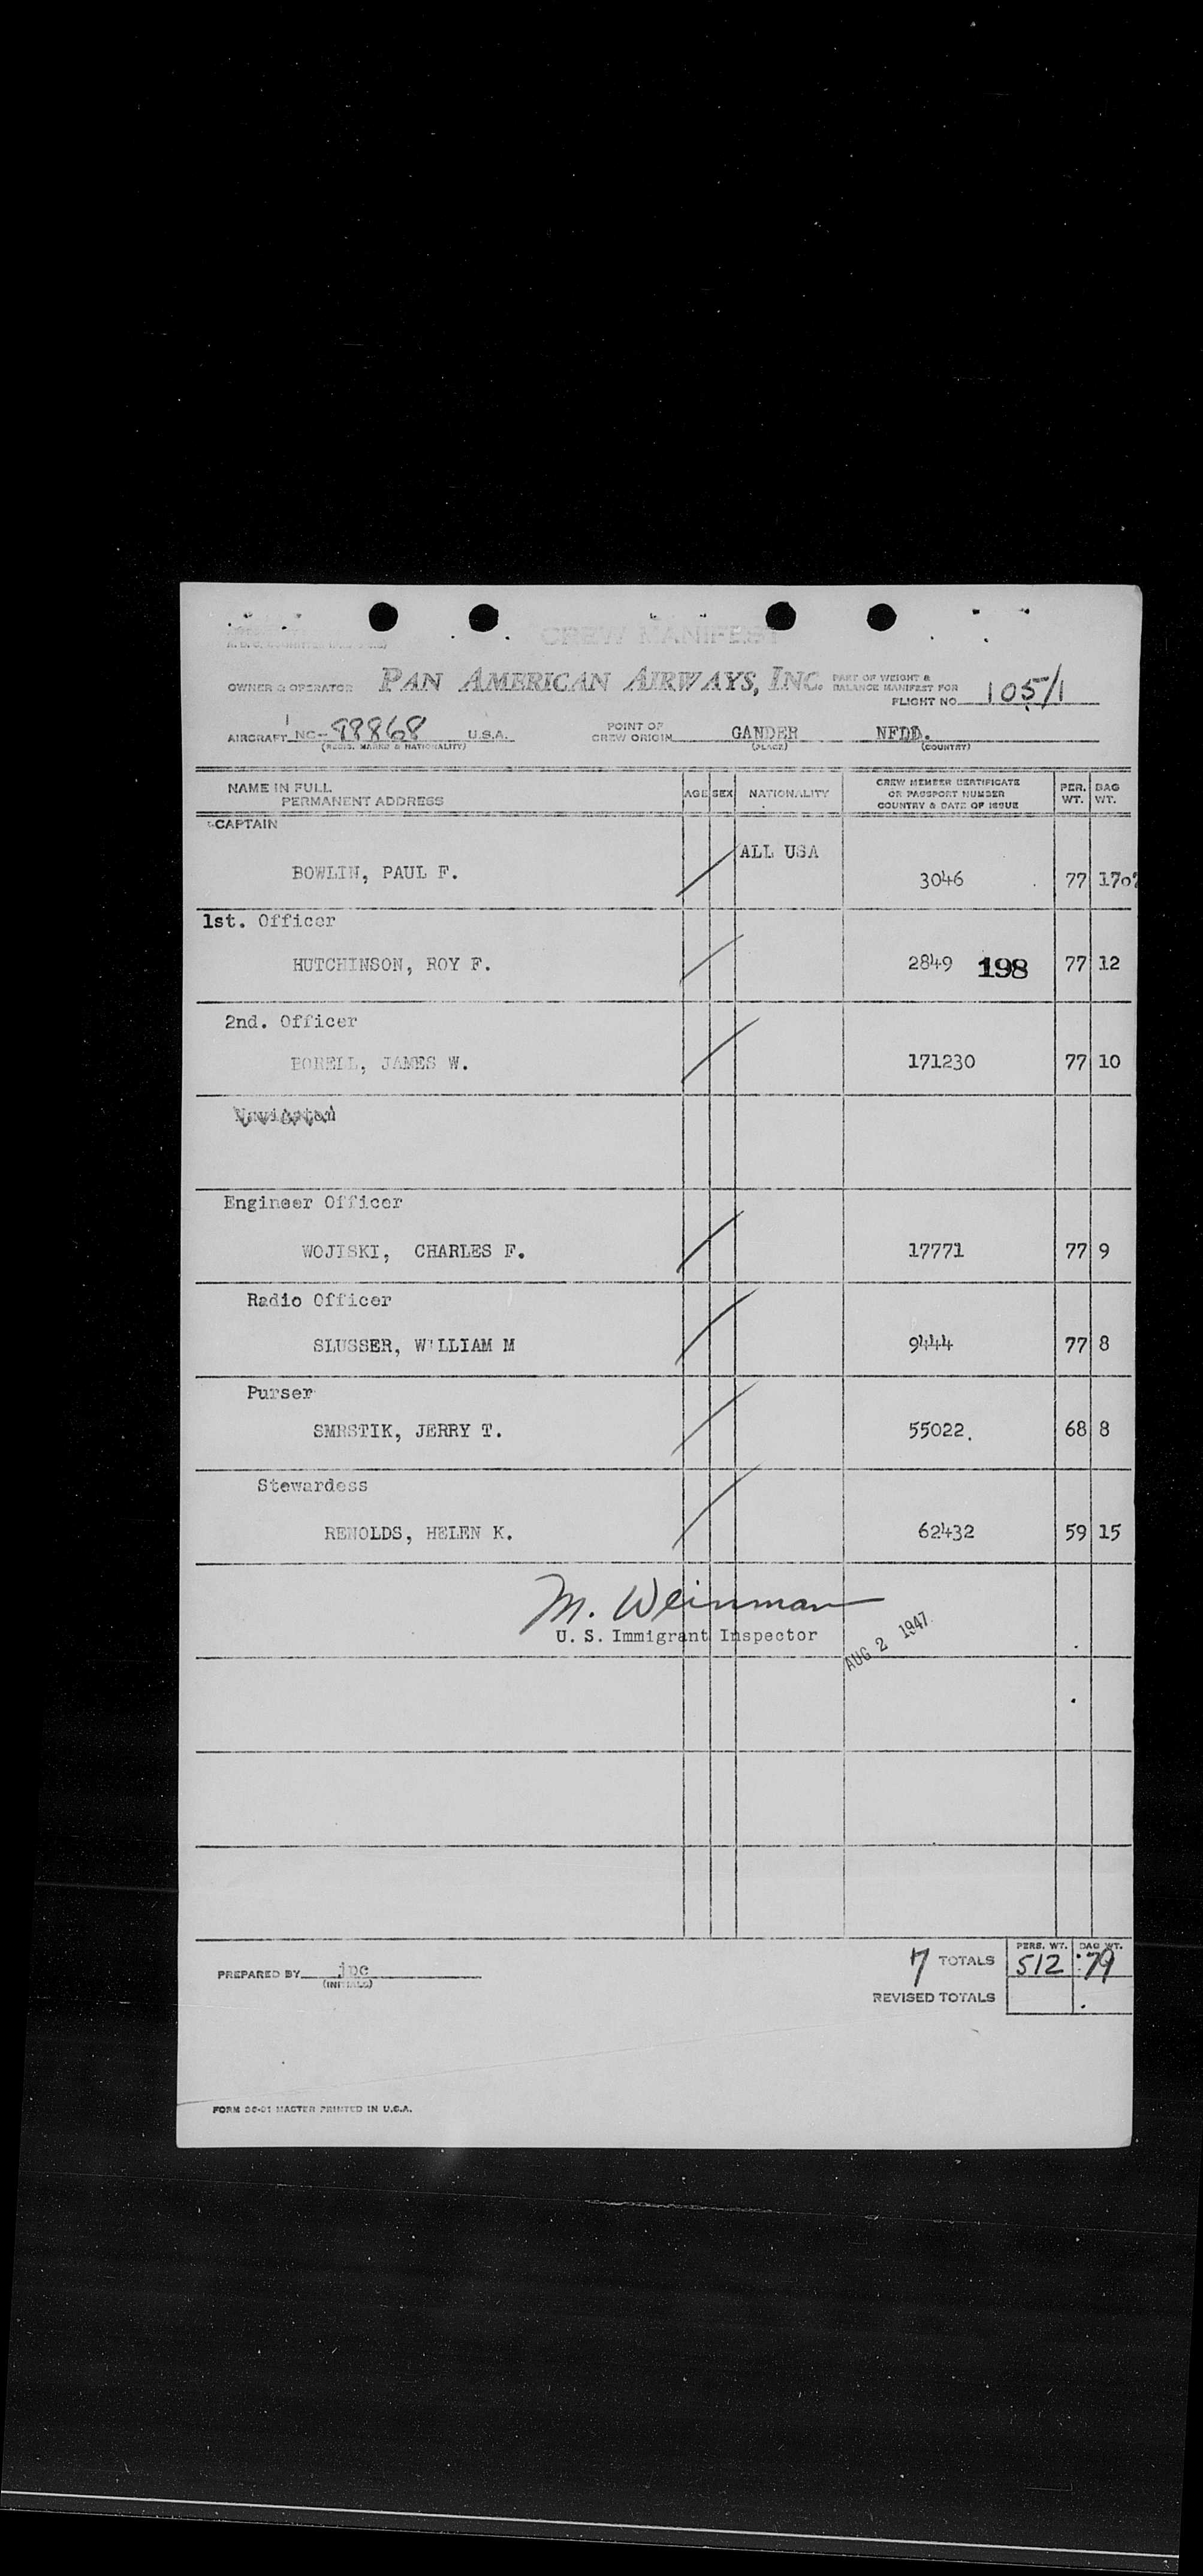 CREW MANIFEST
OWNER & OPERATOR PAN AMERICAN AIRWAYS, INC. PART OF WEIGHT & BALANCE MANIFEST FOR FLIGHT NO. 105/1
AIRCRAFT NC- 88868 U.S.A. POINT OF CREW ORIGIN GANDER NFDD.
(REGIS. MARKS & NATIONALITY) (PLACE) (COUNTRY)
NAME IN FULL PERMANENT ADDRESS AGE SEX NATIONALITY CREW MEMBER CERTIFICATE OR PASSPORT NUMBER COUNTRY & DATE OF ISSUE PER. WT. BAG WT.
CAPTAIN
ALL USA
BOWLIN, PAUL F. 3046 77 17
1st. Officer
HUTCHINSON, ROY F. 2849 198 77 12
2nd. Officer
BORELL, JAMES W. 171230 77 10
Navigator
Engineer Officer
WOJISKI, CHARLES F. 17771 77 9
Radio Officer
SLUSSER, WILLIAM M 9444 77 8
Purser
SMRSTIK, JERRY T. 55022. 68 8
Stewardess
RENOLDS, HELEN K. 62432 59 15
M. Weinman
U. S. Immigrant Inspector
AUG 2 1947
PERS. WT. BAG WT.
PREPARED BY jpc 7 TOTALS 512 79
(INITIALS)
REVISED TOTALS
FORM 36-01 MASTER PRINTED IN U.S.A.